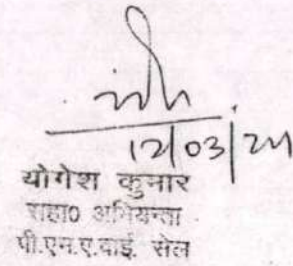 12/03/24
योगेश कुमार
सहा0 अभियन्ता
पी.एम.ए.वाई. सेल